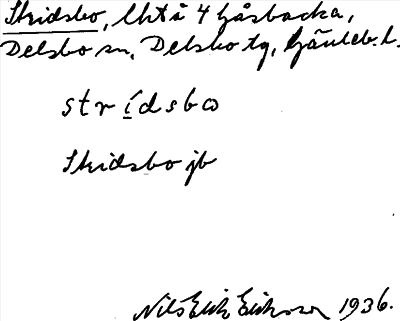 Stridsbo, lht å 4 Gåsbacka,
Delsbo sn, Delsbo tg, Gävleb. l.
strídsbω
Stridsbo jb
Nils Erik Eriksson 1936.